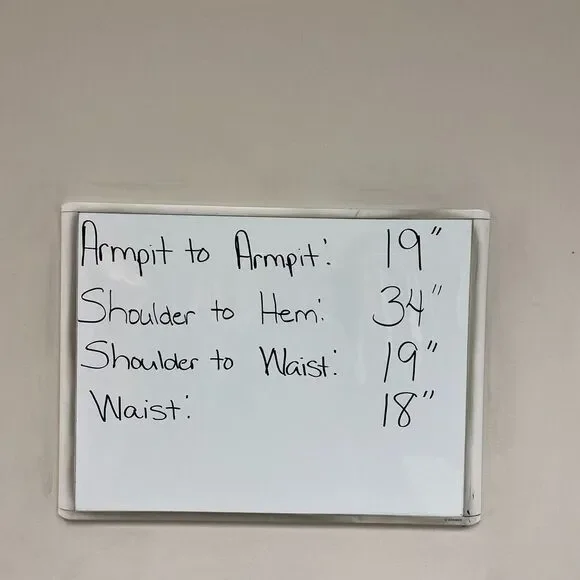 Armpit to Armpit: 19"
Shoulder to Hem: 34"
Shoulder to Waist: 19"
Waist: 18"